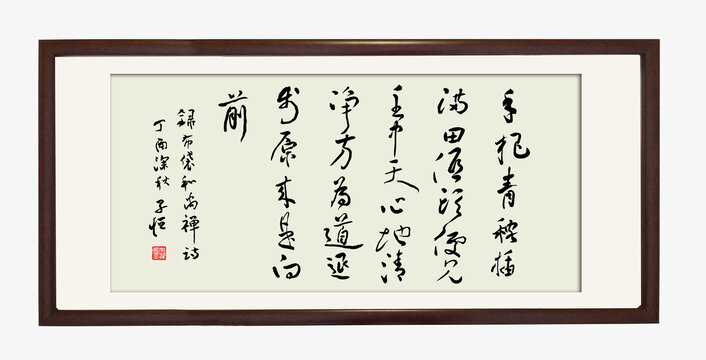 手把青秧插
满田低头便见
水中天心地清
净方为道退
步原来是向
前
録布袋和尚禪诗
丁酉深秋 子恒